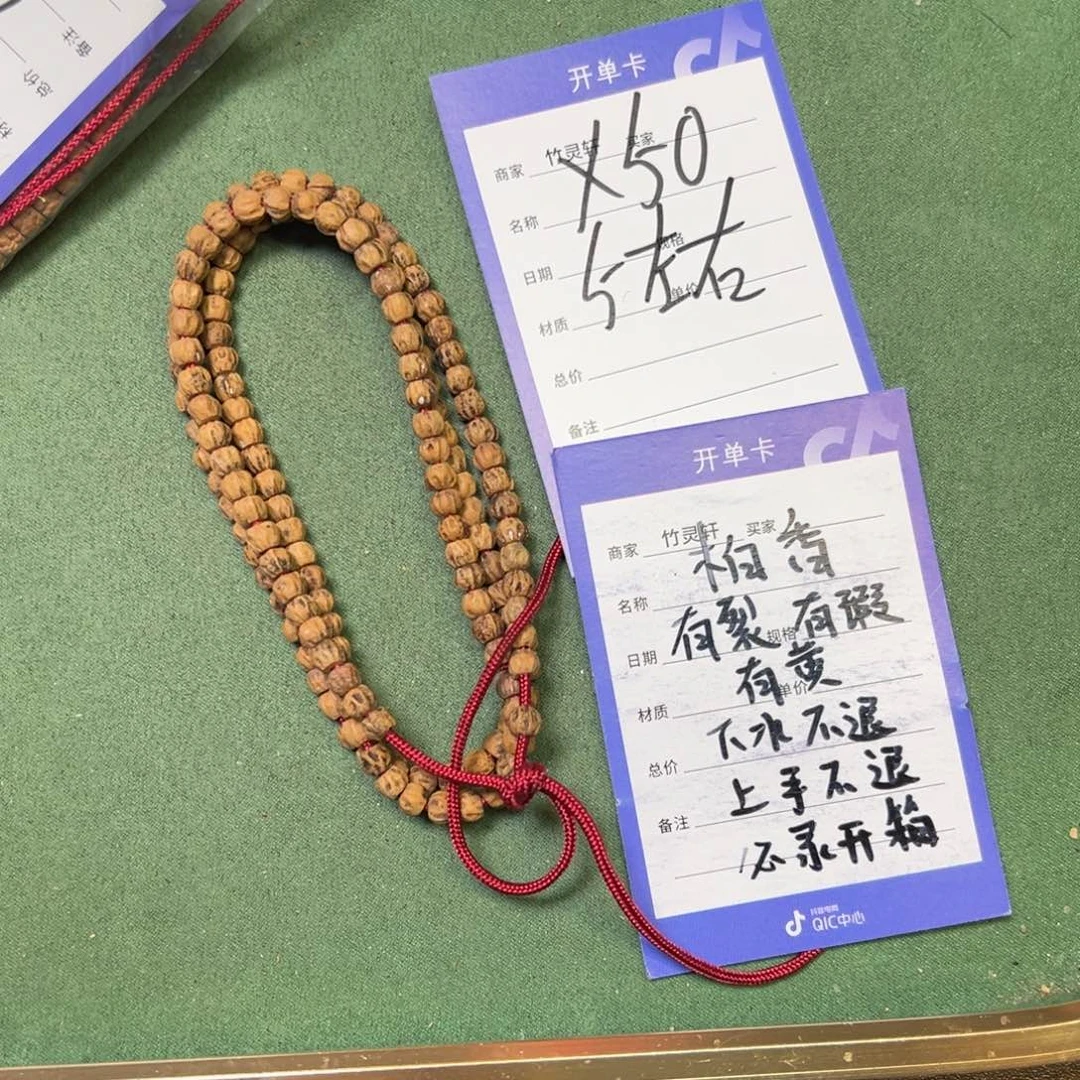 备注
总价
开单卡
商家 竹灵轩 买家
X50
名称
5左右
规格
日期
单价
材质
总价
备注
开单卡
商家 竹灵轩 买家
柏香
名称
有裂 有瑕
日期 规格
有黄
单价
材质
下水不退
总价
上手不退
备注
必录开箱
抖音电商
QIC中心